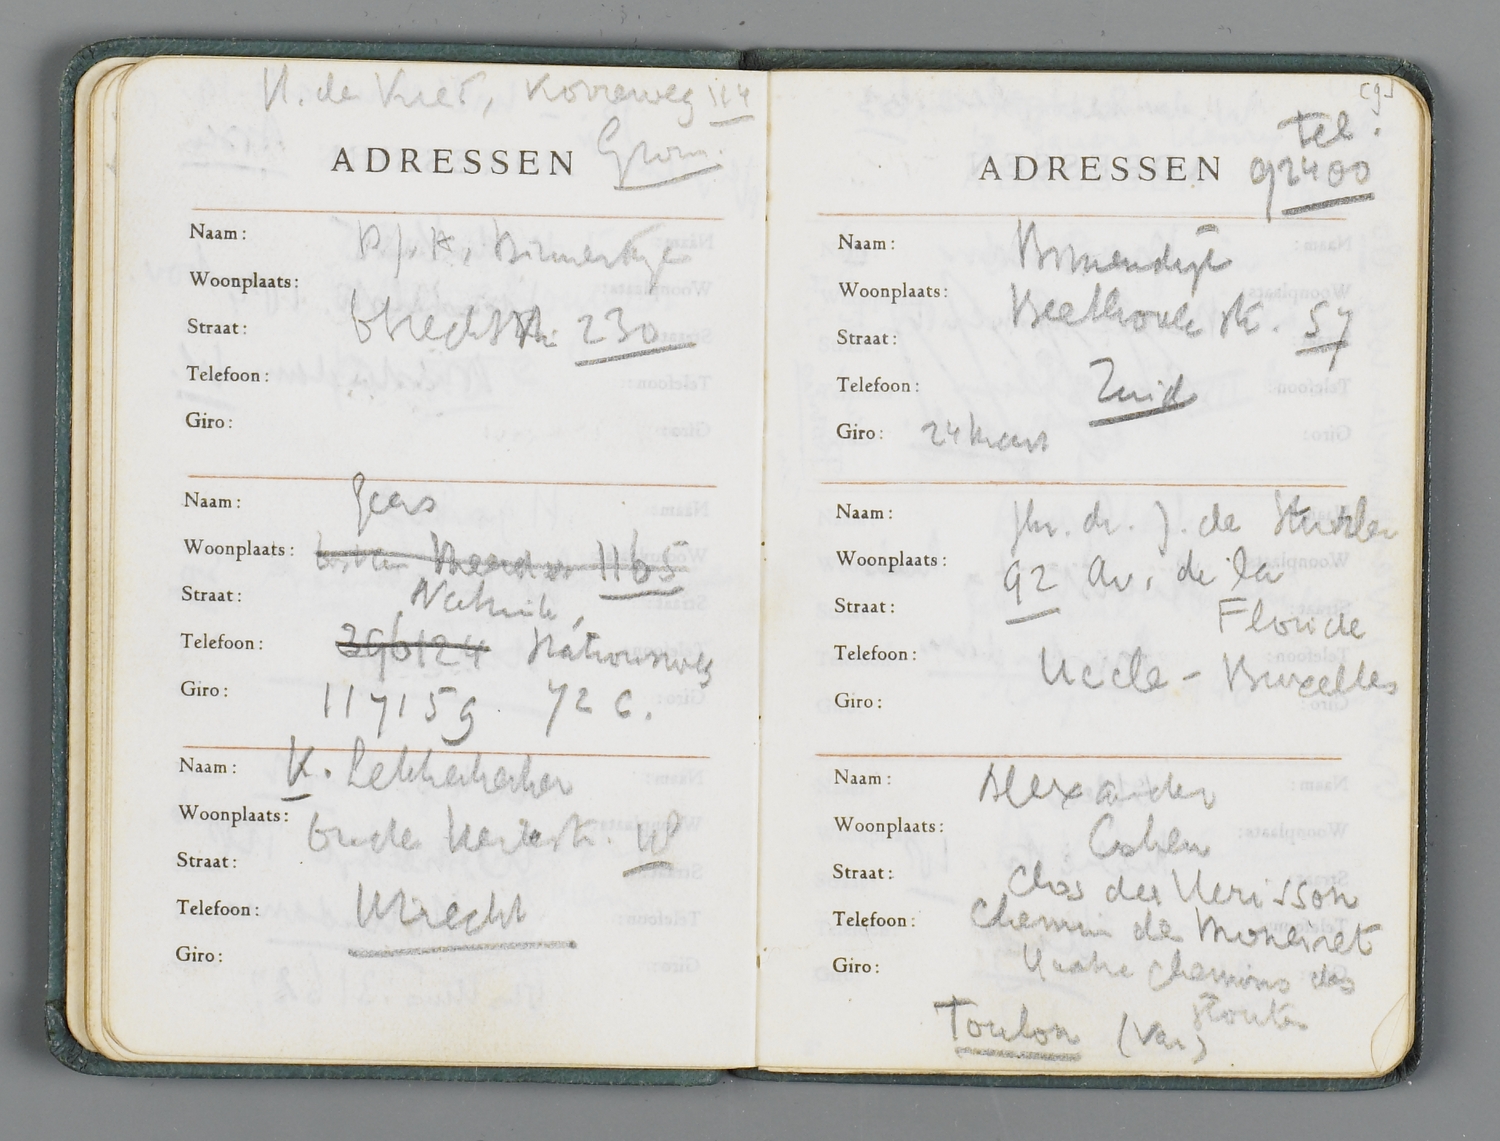 H. de Vries, Korreweg 114
Gron.
ADRESSEN
Naam:
Woonplaats:
Straat: Utrechtstr. 230
Telefoon:
Giro:
Naam: Geers
Woonplaats: 1165
Straat:
Telefoon: 296124
Giro: 117159. 72 c.
Naam: K. Lekkerkerker
Woonplaats: Oude
Straat:
Telefoon: Utrecht
Giro:
[9]
tel.
ADRESSEN 92400
Naam: Binnendijk
Woonplaats: Beethovenstr. 57
Straat:
Telefoon: Zuid
Giro: 24 kwart
Naam: Jhr. dr. J. de Sturler
Woonplaats: 92 Av. de la
Straat: Floride
Telefoon: Uccle - Bruxelles
Giro:
Naam: Alexander
Woonplaats: Cohen
Straat: Clos du Hérisson
Telefoon: Chemin de
Giro: Quatre Chemins des
Routes
Toulon (Var)